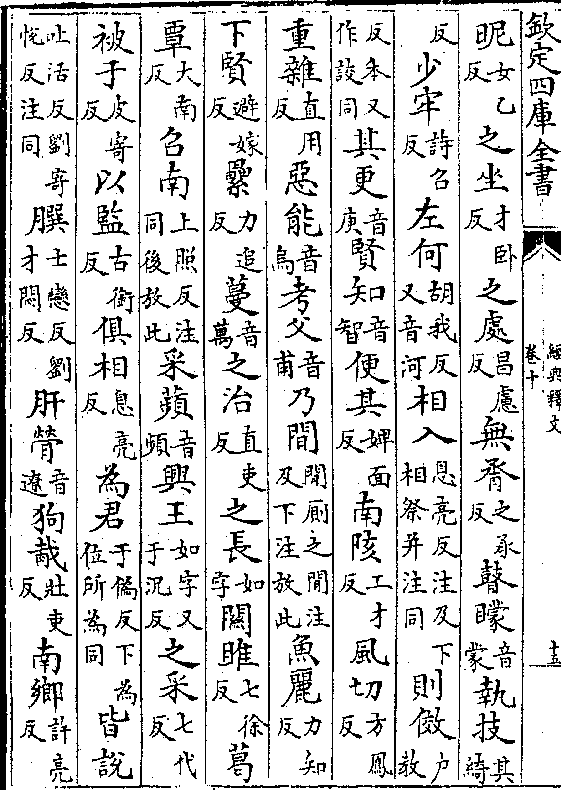 欽定四庫全書
經典釋文
卷十
十五
昵女乙反之坐才卧反之處昌慮反無脀之承反瞽矇音蒙執技其綺
反少牢詩召反左何胡我反又音河相入息亮反注及下相祭并注同則傚户教
反本又作設同其更音庚賢知音智便其婢面反南陔工才反風切方鳳反
重雜直用反惡能音烏考父音甫乃間閒厠之閒注及下注放此魚麗力知反
下賢避嫁反纍力追反蔓音萬之治直吏反之長如字關雎七徐反葛
覃大南反召南上照反注同後放此采蘋音頻興王如字又于況反之采七代反
被于皮寄反以監古銜反俱相息亮反為君于偽反下為位所為同皆說
吐活反劉寄悅反注同士戀反劉才閞反肝膋音遼狗胾壯吏反南鄉許亮反